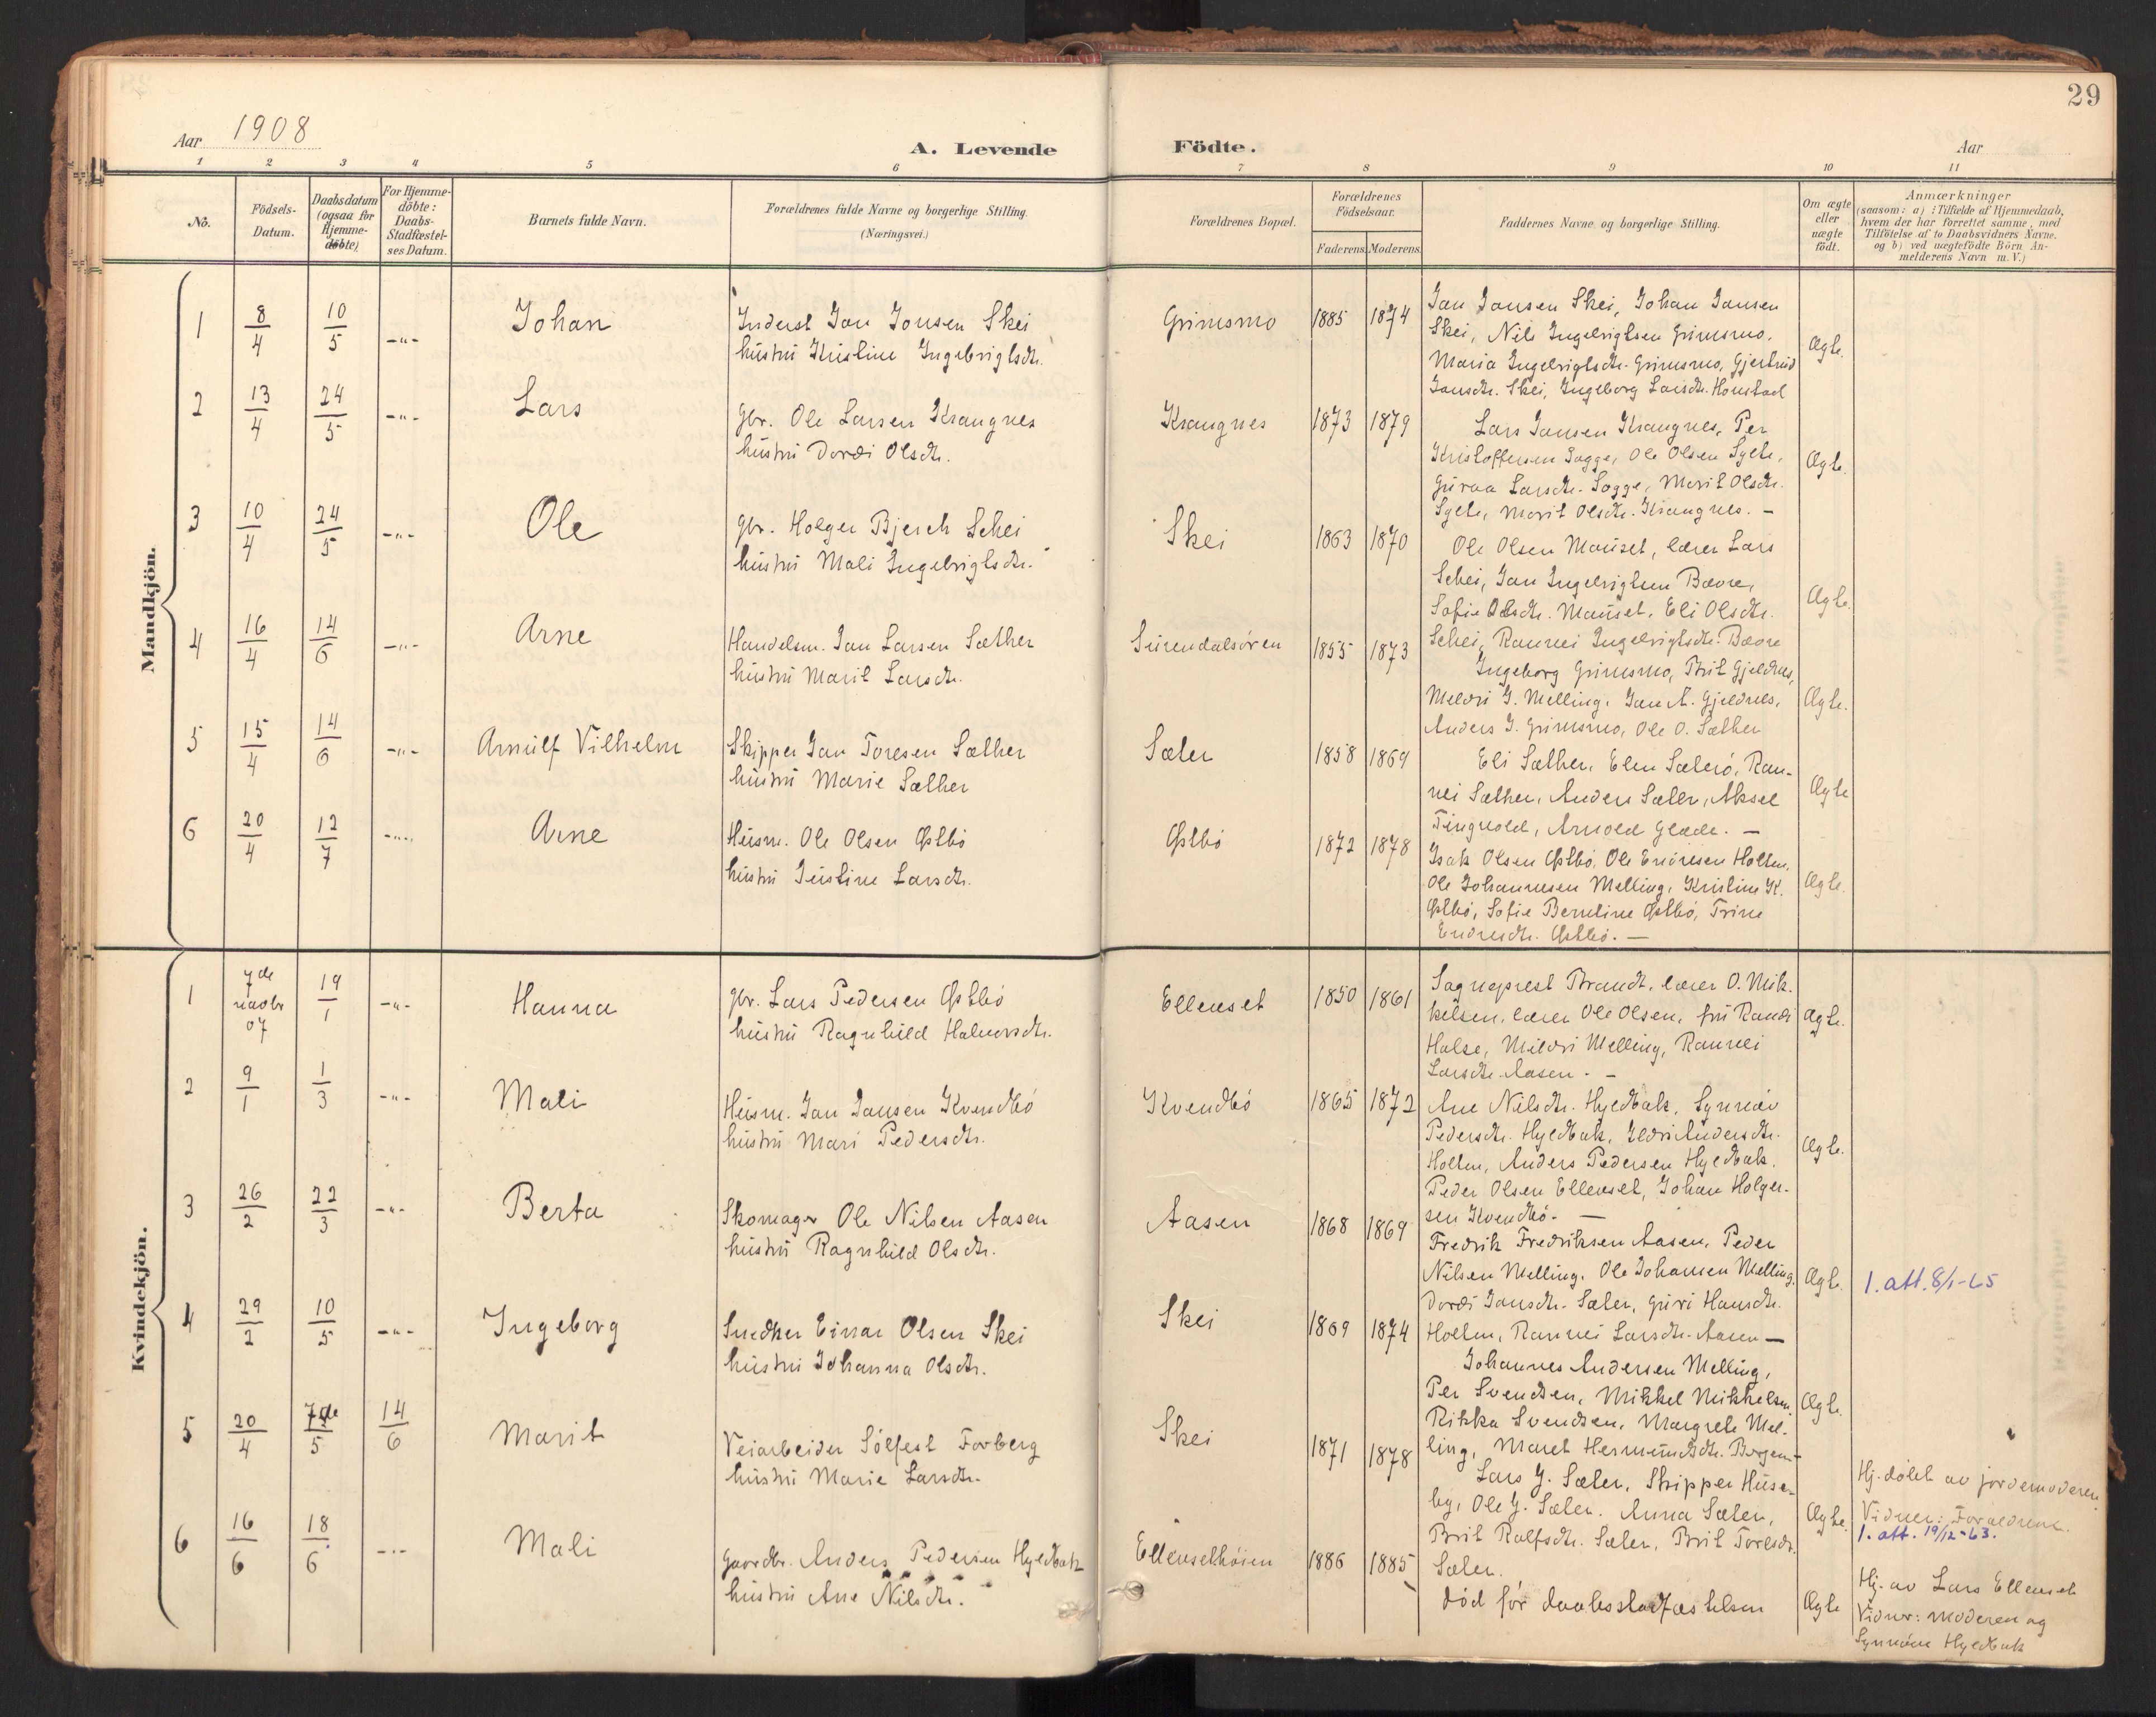 29
Aar 1908
A. Levende Födte.
Aar
1 2 3 4 5 6 7 8 9 10 11
No.
Födsels-
Datum.
Daabsdatum
(ogsaa for
Hjemme-
döbte).
For Hjemme-
döbte:
Daabs-
Stadfæstel-
ses Datum.
Barnets fulde Navn.
Forældrenes fulde Navne og borgerlige Stilling.
(Næringsvei.)
Forældrenes Bopæl.
Forældrenes
Födselsaar.
Faderens. Moderens.
Faddernes Navne og borgerlige Stilling.
Om ægte
eller
uægte
födt.
Anmærkninger
(saasom: a) i Tilfælde af Hjemmedaab,
hvem der har forrettet samme, med
Tilföielse af to Daabsvidners Navne,
og b) ved uægtefödte Börn An-
melderens Navn m. V.)
Mandkjön.
1 8/4 10/5 -"- Johan
Inderst Jon Jonsen Skei
hustru Kristine Ingebrigtsdtr.
Grimsmo 1885 1874
Jon Jonsen Skei, Johan Jonsen
Skei, Nils Ingebrigtsen Grimsmo,
Maria Ingebrigtsdtr. Grimsmo, Gjertrud
Jonsdtr. Skei, Ingeborg Larsdtr. Honstad
Ægte.
2 13/4 24/5 -"- Lars
gbr. Ole Larsen Krangnes
hustru Dordi Olsdtr.
Krangnes 1873 1879
Lars Jansen Krangnes, Per
Kristoffersen Sogge, Ole Olsen Sylte,
Guraa Larsdtr. Sogge, Marit Olsdtr.
Sylte, Marit Olsdtr. Krangnes. -
Ægte.
3 10/4 24/5 -"- Ole
gbr. Holger Bjerch Schei
hustru Mali Ingebrigtsdtr.
Skei 1863 1870
Ole Olsen Mauset, lærer Lars
Schei, Jon Ingebrigtsen Bævre,
Sofie Olsdtr. Mauset, Eli Olsdtr.
Schei, Rannei Ingebrigtsdtr. Bævre
Ægte.
4 16/4 14/6 -"- Arne
Handelsm. Jon Larsen Sæther
hustru Marit Larsdtr.
Surendalsøren 1855 1873
Ingeborg Grimsmo, Brit Gjeldnes,
Meldri J. Melling, Jon A. Gjeldnes,
Anders J. Grimsmo, Ole O. Sæther
Ægte.
5 15/4 14/6 -"- Arnulf Vilhelm
Skipper Jon Toresen Sæther
hustru Marie Sæther
Sæter 1858 1869
Eli Sæther, Elen Sæterö, Ran-
nei Sæther, Anders Sæter, Aksel
Tingvold, Arnold Glæde. -
Ægte
6 20/4 12/7 -"- Arne
Husm. Ole Olsen Østbö
hustru Justine Larsdtr.
Østbö 1872 1878
Isak Olsen Østbö, Ole Endresen Holten,
Ole Johannesen Melling, Kristine K.
Østbö, Sofie Berntine Østbö, Trine
Endresdtr. Østbö. -
Ægte.
Kvindekjön.
1 7de novbr 07 19/1 -"- Hanna
gbr. Lars Pedersen Østbö
hustru Ragnhild Halvorsdtr.
Ellenset 1850 1861
Sogneprest Brandt, lærer O. Mik-
kelsen, lærer Ole Olsen, fru Randi
Halse, Mildri Melling, Rannei
Larsdtr. Aasen. -
Ægte.
2 9/1 1/3 -"- Mali
Husm. Jon Jonsen Kvendbö
hustru Mari Pedersdtr.
Kvendbö 1865 1872
Ane Nilsdtr. Hyldbak, Synnöv
Pedersdtr. Hyldbak, Ildri Andersdtr.
Holten, Anders Pedersen Hyldbak,
Peder Olsen Ellenset, Johan Holger-
sen Kvendbö. -
Ægte.
3 26/2 22/3 -"- Berta
Skomager Ole Nilsen Aasen
hustru Ragnhild Olsdtr.
Aasen 1868 1869
Fredrik Fredriksen Aasen, Peder
Nilsen Melling, Ole Johansen Melling,
Dordi Jonsdtr. Sæter, Guri Hansdtr.
Holten, Rannei Larsdtr. Aasen -
Ægte.
1. att. 8/1-65
4 29/2 10/5 -"- Ingeborg
Snedker Einar Olsen Skei
hustru Johanna Olsdtr.
Skei 1869 1874
Johannes Andersen Melling,
Per Svendsen, Mikkel Mikkelsen,
Rikka Svendsen, Margrete Mel-
ling, Maret Hermundsdtr. Borgen -
Ægte.
5 20/4 7de/5 14/6 Marit
Veiarbeider Sölfest Forberg
hustru Marie Larsdtr.
Skei 1871 1878
Lars J. Sæter, Skipper Huse-
by, Ole J. Sæter. Anna Sæter,
Brit Rolfsdtr. Sæter, Brit Toresdtr.
Sæter.
Ægte.
Hj. döbt av jordemoderen.
Vidner: Forældrene.
1. att. 19/12-63.
6 16/6 18/6 -"- Mali
Gaardbr. Anders Pedersen Hyldbak
hustru Ane Nilsdtr.
Ellensethöien 1886 1885
död för daabsstadfæstelsen
Ægte
Hj. av Lars Ellenset
Vidner: Moderen og
Synnöve Hyldbak